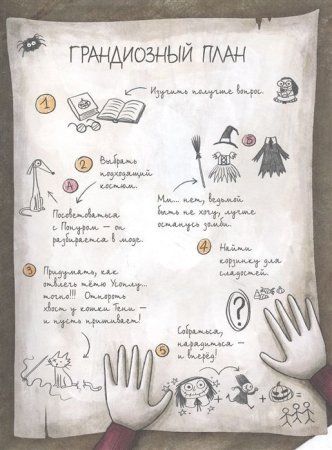 ГРАНДИОЗНЫЙ ПЛАН
1
Изучить получше вопрос.
2
Выбрать
подходящий
костюм.
А
Посоветоваться
с Понуром – он
разбирается в моде.
Б
Мм... нет, ведьмой
быть не хочу, лучше
останусь зомби.
3
Придумать, как
отвлечь тётю Усоплу...
точно!!! Отпороть
хвост у кошки Тени –
и пусть пришивает!
4
Найти
корзинку для
сладостей.
?
5
Собраться,
нарядиться –
и вперёд!
+ + + =